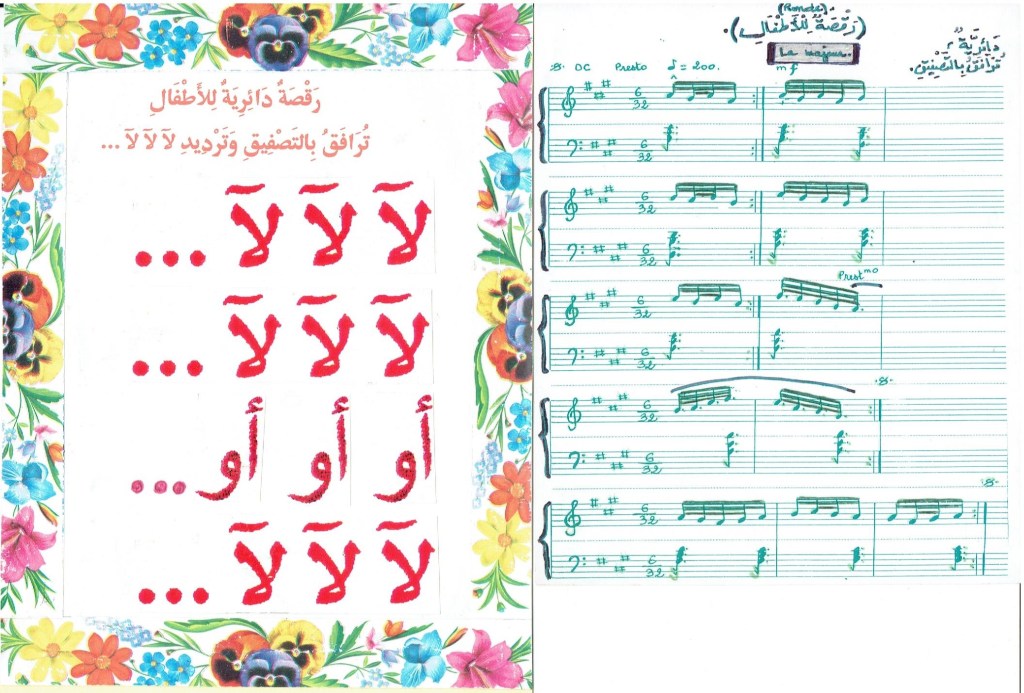 رَقْصَةٌ دَائِرِيَةٌ لِلأَطْفَالِ
تُرَافَقُ بِالتَصْفِيقِ وَتَرْدِيدِ لآ لآ لآ ...
لآ لآ لآ ...
لآ لآ لآ ...
أو أو أو ...
لآ لآ لآ ...
(Ronde)
(رَقْصَةٌ لِلأَطْفَالِ).
دَائِرِيَّةٌ
تُرَافَقُ بِالتَّصْفِيقِ.
La majeur.
DC Presto ♩ = 200. mf
6/32
6/32
6/32
6/32
Prest mo
6/32
6/32
6/32
6/32
6/32
6/32